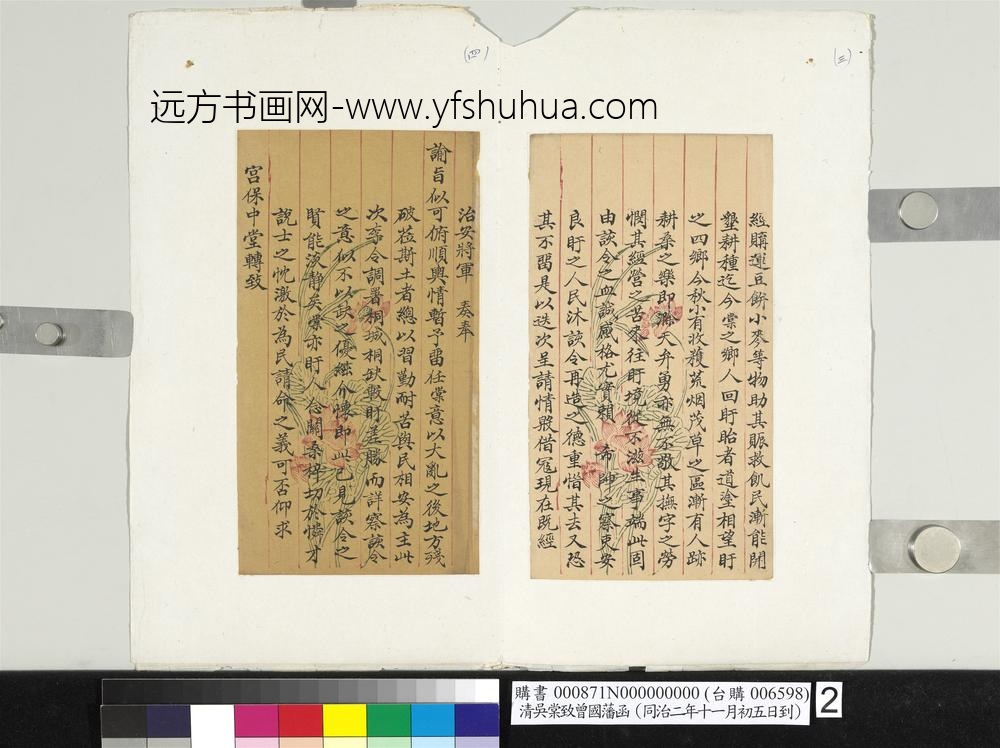 (三)
經購運豆餅小麥等物助其賑救飢民漸能開
墾耕種迄今棠之鄉人回盱眙者道塗相望盱
之四鄉今秋小有收穫荒烟茂草之區漸有人跡
耕桑之樂即滁天弁勇亦無不敬其撫字之勞
憫其經營之苦來往盱境從不滋生事端此固
由該令之血誠感格尤實賴 帀帥之察吏安
良盱之人民沐該令再造之德重惜其去又恐
其不留是以迭次呈請情殷借寇現在既經
(四)
治安將軍 奏奉
諭旨似可俯順輿情暫予留任棠意以大亂之後地方殘
破莅斯土者總以習勤耐苦與民相安為主此
次李令調署桐城桐缺較盱差勝而詳察該令
之意似不以缺之優絀介懷即此已見該令之
賢能淡靜矣棠亦盱人念關桑梓切於憐才
說士之忱激於為民請命之義可否仰求
宮保中堂轉致
远方书画网-www.yfshuhua.com
購書 000871N000000000 (台購 006598)
清吳棠致曾國藩函 (同治二年十一月初五日到)
2